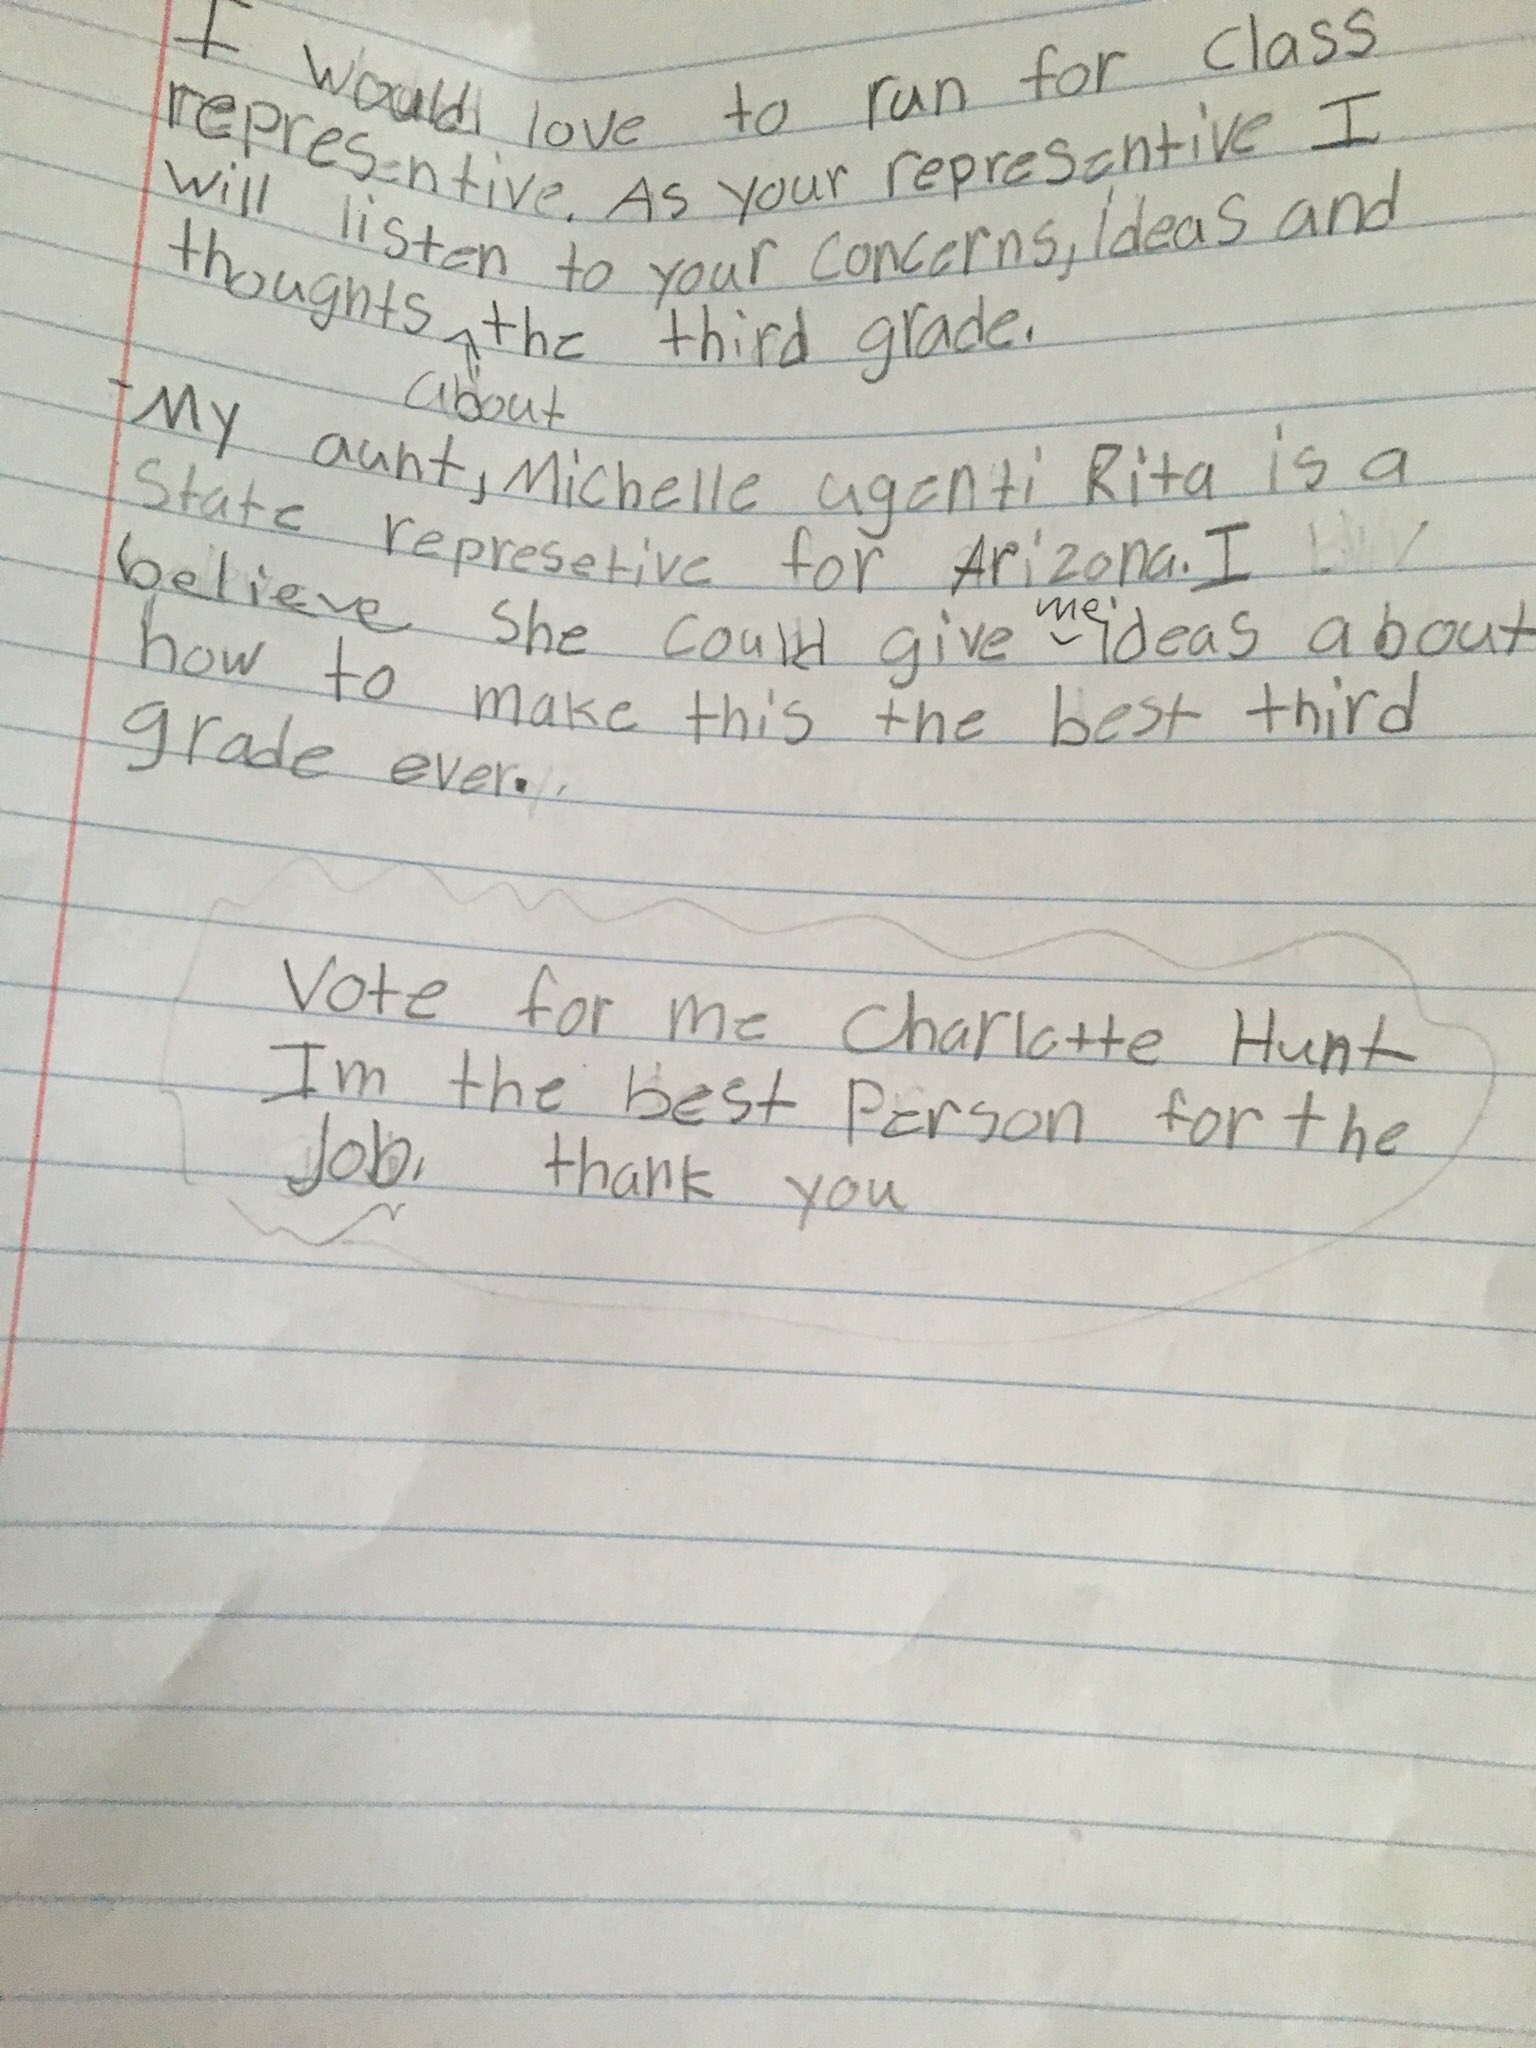 I would love to run for class
representive. As your representive I
will listen to your concerns, ideas and
thoughts the third grade.
about
My aunt, Michelle ugenti Rita is a
State represetive for Arizona. I
believe she could give me ideas about
how to make this the best third
grade ever.
Vote for me Charlotte Hunt
Im the best Person for the
Job. thank you